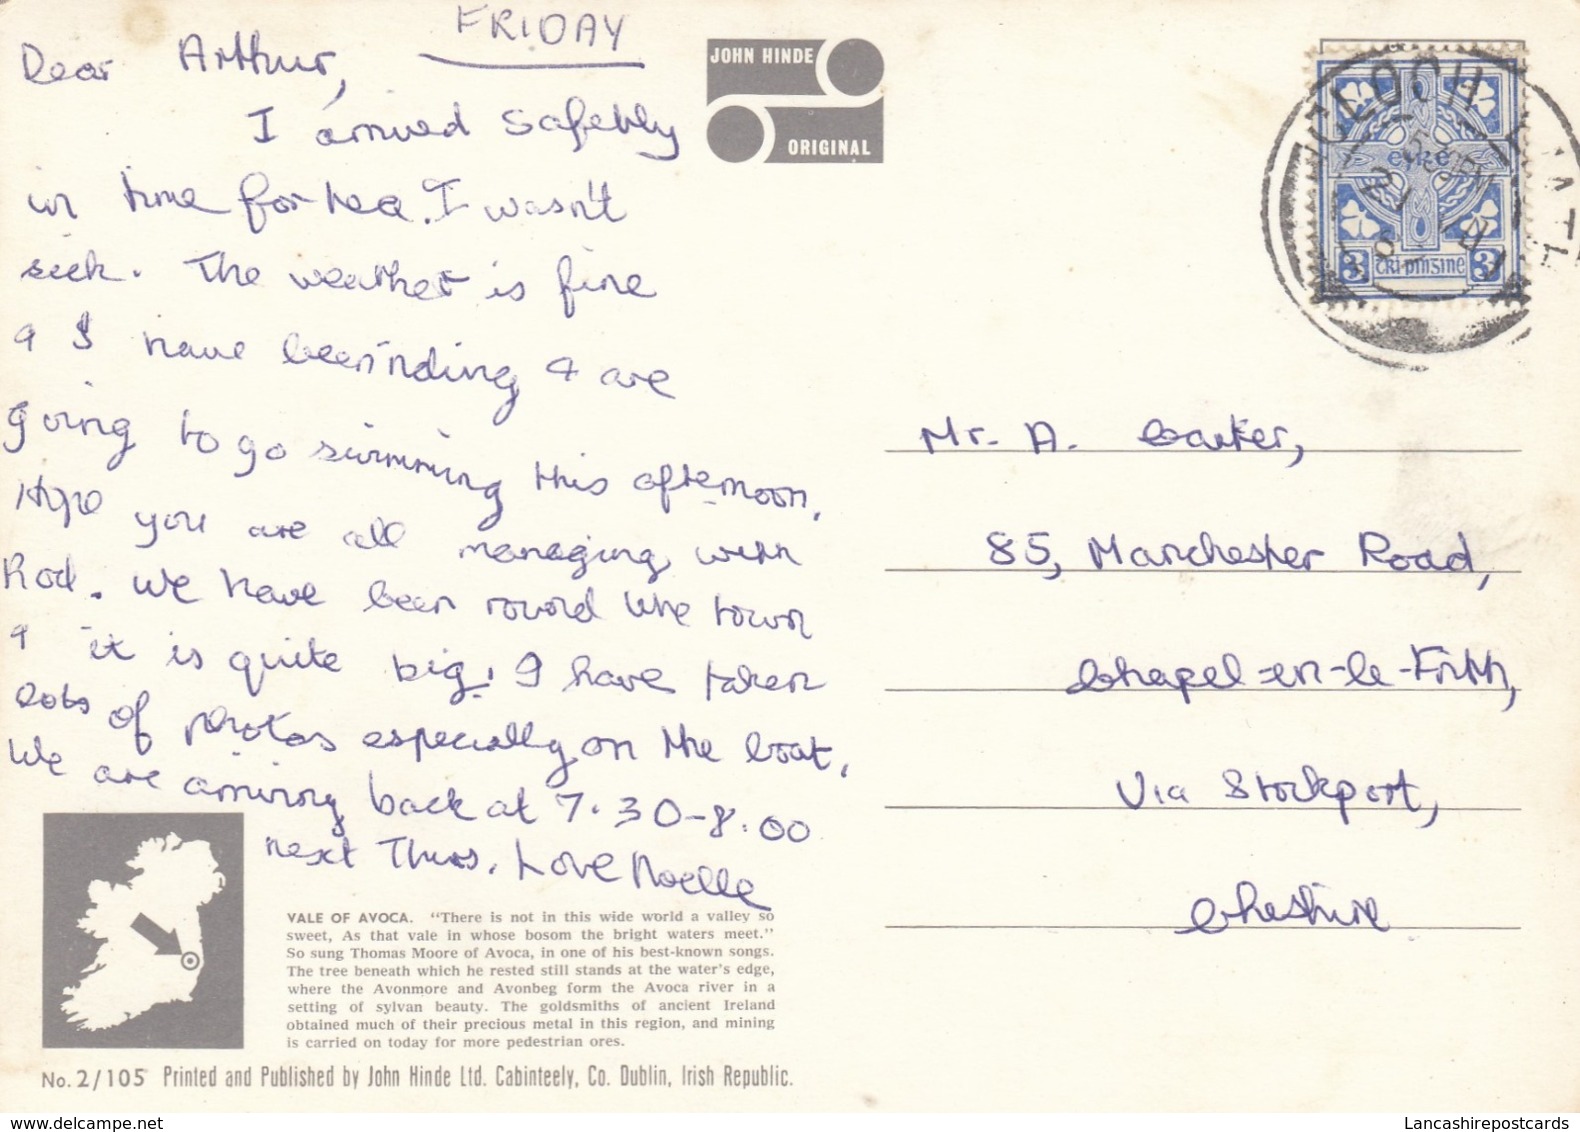 FRIDAY
Dear Arthur,
I arrived safetly
in time for tea. I wasn't
sick. The weather is fine
& I have been riding & are
going to go swimming this afternoon.
Hope you are all managing with
Rod. We have been round the town
& it is quite big. I have taken
lots of photos especially on the boat.
We are arriving back at 7.30-8.00
next Thurs. Love Noelle
JOHN HINDE
ORIGINAL
EIRE
3 3
Mr. A.
85, Manchester Road,
Chapel-en-le-Frith,
Via Stockport,
Cheshire
VALE OF AVOCA. "There is not in this wide world a valley so
sweet, As that vale in whose bosom the bright waters meet."
So sung Thomas Moore of Avoca, in one of his best-known songs.
The tree beneath which he rested still stands at the water's edge,
where the Avonmore and Avonbeg form the Avoca river in a
setting of sylvan beauty. The goldsmiths of ancient Ireland
obtained much of their precious metal in this region, and mining
is carried on today for more pedestrian ores.
No. 2/105 Printed and Published by John Hinde Ltd. Cabinteely, Co. Dublin, Irish Republic.
Lancashirepostcards